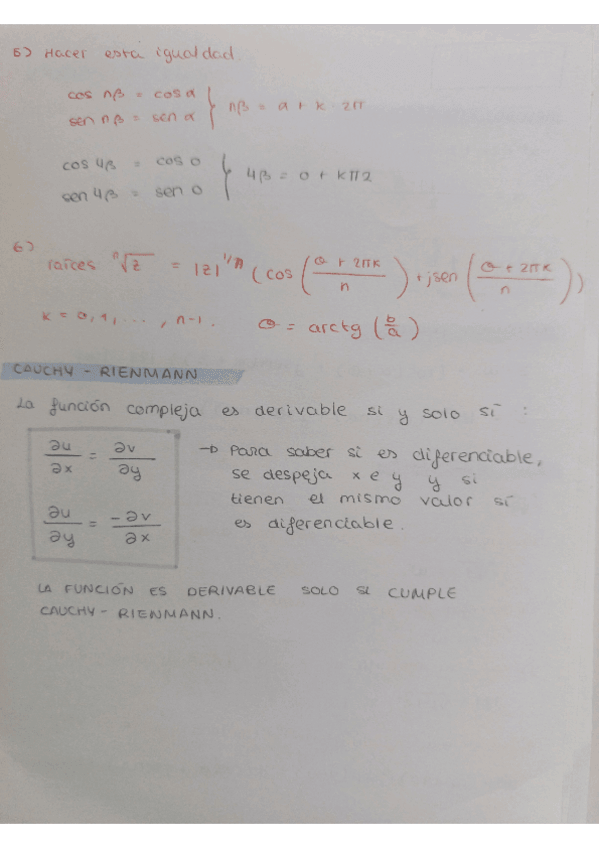 5) Hacer esta igualdad.
cos nβ = cos α } nβ = α + k · 2π
sen nβ = sen α
cos 4β = cos 0 } 4β = 0 + kπ2
sen 4β = sen 0
6)
raíces ⁿ√z = |z|^1/n (cos ((θ + 2πk)/n) + j sen ((θ + 2πk)/n))
k = 0, 1, ..., n-1. θ = arctg (b/a)
CAUCHY - RIENMANN
La función compleja es derivable si y solo sí :
∂u/∂x = ∂v/∂y
∂u/∂y = -∂v/∂x
→ Para saber si es diferenciable,
se despeja x e y y si
tienen el mismo valor sí
es diferenciable.
LA FUNCIÓN ES DERIVABLE SOLO SI CUMPLE
CAUCHY - RIENMANN.